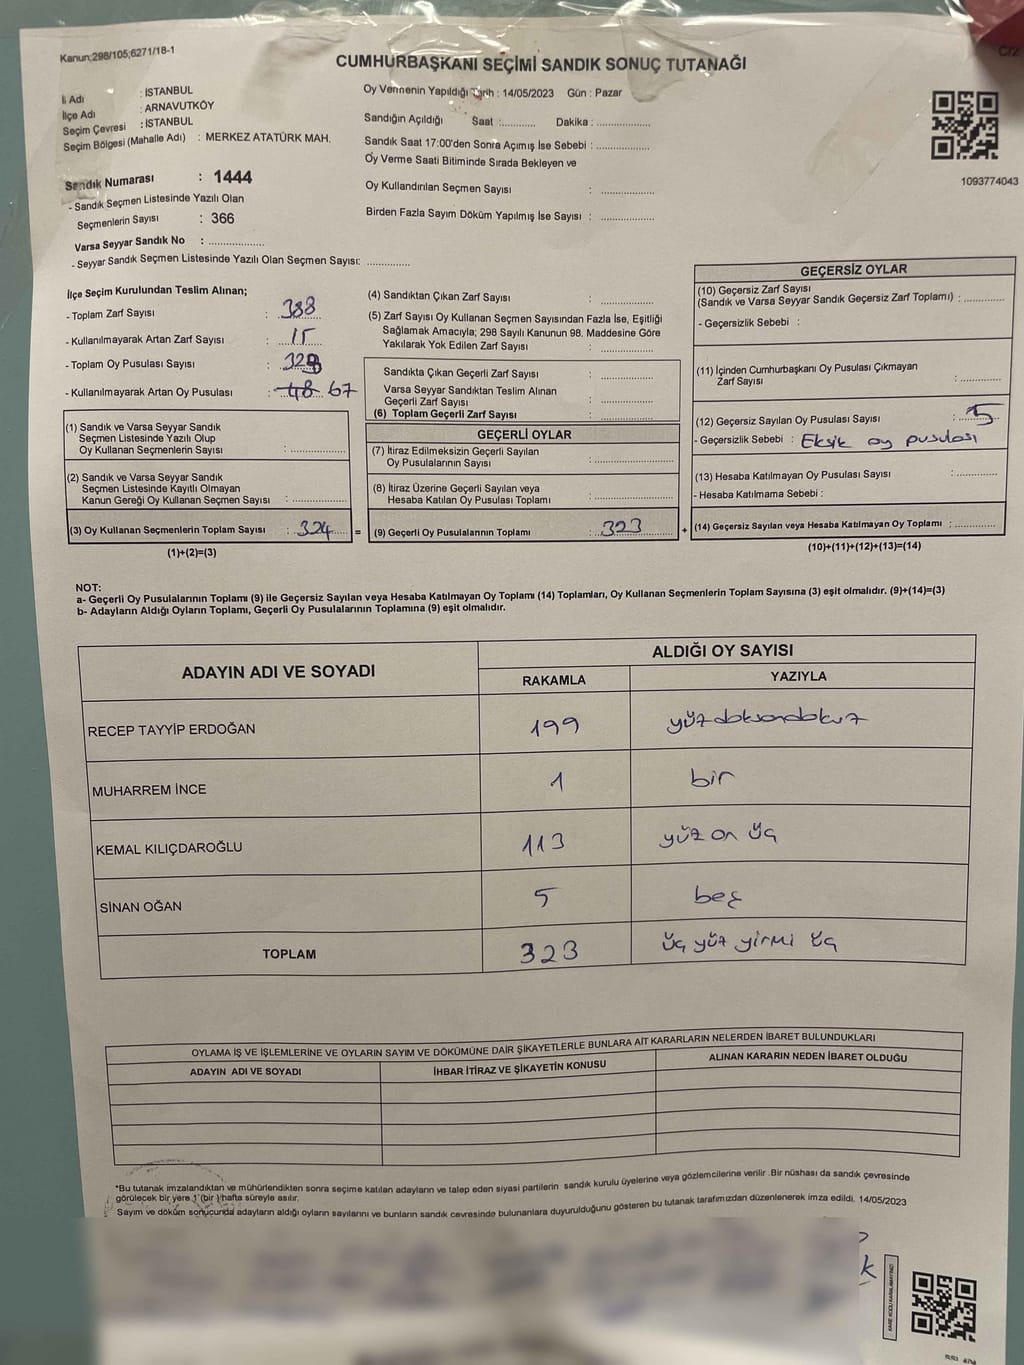 Kanun;298/105;6271/18-1
C/2
CUMHURBAŞKANI SEÇİMİ SANDIK SONUÇ TUTANAĞI
İl Adı : İSTANBUL
İlçe Adı : ARNAVUTKÖY
Seçim Çevresi : İSTANBUL
Seçim Bölgesi (Mahalle Adı) : MERKEZ ATATÜRK MAH.
Sandık Numarası : 1444
- Sandık Seçmen Listesinde Yazılı Olan
Seçmenlerin Sayısı : 366
Varsa Seyyar Sandık No : ..................
- Seyyar Sandık Seçmen Listesinde Yazılı Olan Seçmen Sayısı: .............
Oy Vermenin Yapıldığı Tarih : 14/05/2023 Gün : Pazar
Sandığın Açıldığı Saat :........... Dakika : .................
Sandık Saat 17:00'den Sonra Açımış İse Sebebi : .................
Oy Verme Saati Bitiminde Sırada Bekleyen ve
Oy Kullandırılan Seçmen Sayısı : .................
Birden Fazla Sayım Döküm Yapılmış İse Sayısı : .................
1093774043
İlçe Seçim Kurulundan Teslim Alınan;
- Toplam Zarf Sayısı : 388
- Kullanılmayarak Artan Zarf Sayısı : 15
- Toplam Oy Pusulası Sayısı :
- Kullanılmayarak Artan Oy Pusulası : 48 67
(1) Sandık ve Varsa Seyyar Sandık
Seçmen Listesinde Yazılı Olup
Oy Kullanan Seçmenlerin Sayısı : .................
(2) Sandık ve Varsa Seyyar Sandık
Seçmen Listesinde Kayıtlı Olmayan
Kanun Gereği Oy Kullanan Seçmen Sayısı : .................
(3) Oy Kullanan Seçmenlerin Toplam Sayısı : 324 =
(1)+(2)=(3)
(4) Sandıktan Çıkan Zarf Sayısı : ................
(5) Zarf Sayısı Oy Kullanan Seçmen Sayısından Fazla İse, Eşitliği
Sağlamak Amacıyla; 298 Sayılı Kanunun 98. Maddesine Göre
Yakılarak Yok Edilen Zarf Sayısı : ................
Sandıkta Çıkan Geçerli Zarf Sayısı : ................
Varsa Seyyar Sandıktan Teslim Alınan
Geçerli Zarf Sayısı : ................
(6) Toplam Geçerli Zarf Sayısı : ................
GEÇERLİ OYLAR
(7) İtiraz Edilmeksizin Geçerli Sayılan
Oy Pusulalarının Sayısı : ................
(8) İtiraz Üzerine Geçerli Sayılan veya
Hesaba Katılan Oy Pusulası Toplamı : ................
(9) Geçerli Oy Pusulalarının Toplamı : 323 +
GEÇERSİZ OYLAR
(10) Geçersiz Zarf Sayısı
(Sandık ve Varsa Seyyar Sandık Geçersiz Zarf Toplamı) : .............
- Geçersizlik Sebebi :
(11) İçinden Cumhurbaşkanı Oy Pusulası Çıkmayan
Zarf Sayısı : .............
(12) Geçersiz Sayılan Oy Pusulası Sayısı : 5
- Geçersizlik Sebebi : Eksik oy pusulası
(13) Hesaba Katılmayan Oy Pusulası Sayısı : .............
- Hesaba Katılmama Sebebi :
(14) Geçersiz Sayılan veya Hesaba Katılmayan Oy Toplamı : .............
(10)+(11)+(12)+(13)=(14)
NOT:
a- Geçerli Oy Pusulalarının Toplamı (9) ile Geçersiz Sayılan veya Hesaba Katılmayan Oy Toplamı (14) Toplamları, Oy Kullanan Seçmenlerin Toplam Sayısına (3) eşit olmalıdır. (9)+(14)=(3)
b- Adayların Aldığı Oyların Toplamı, Geçerli Oy Pusulalarının Toplamına (9) eşit olmalıdır.
ADAYIN ADI VE SOYADI ALDIĞI OY SAYISI
RAKAMLA YAZIYLA
RECEP TAYYİP ERDOĞAN 199 yüzdoksandokuz
MUHARREM İNCE 1 bir
KEMAL KILIÇDAROĞLU 113 yüz on üç
SİNAN OĞAN 5 beş
TOPLAM 323 üç yüz yirmi üç
OYLAMA İŞ VE İŞLEMLERİNE VE OYLARIN SAYIM VE DÖKÜMÜNE DAİR ŞİKAYETLERLE BUNLARA AİT KARARLARIN NELERDEN İBARET BULUNDUKLARI
ADAYIN ADI VE SOYADI İHBAR İTİRAZ VE ŞİKAYETİN KONUSU ALINAN KARARIN NEDEN İBARET OLDUĞU
*Bu tutanak imzalandıktan ve mühürlendikten sonra seçime katılan adayların ve talep eden siyasi partilerin sandık kurulu üyelerine veya gözlemcilerine verilir .Bir nüshası da sandık çevresinde
görülecek bir yere 1 (bir ) hafta süreyle asılır.
Sayım ve döküm sonucunda adayların aldığı oyların sayılarını ve bunların sandık çevresinde bulunanlara duyurulduğunu gösteren bu tutanak tarafımızdan düzenlenerek imza edildi. 14/05/2023